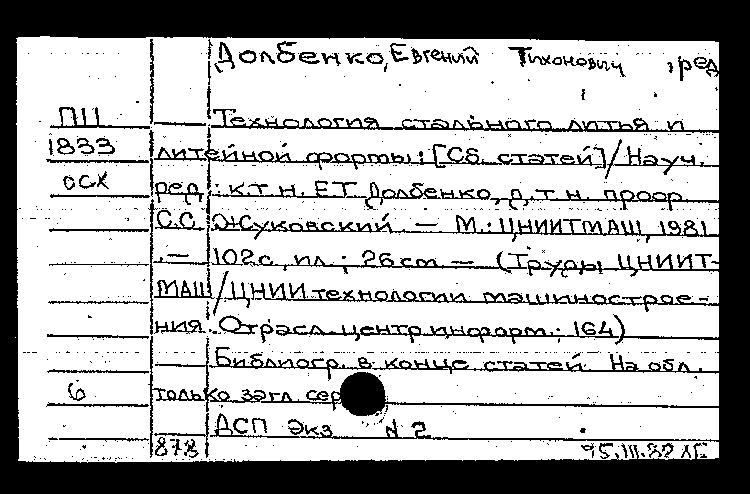 Долбенко, Евгений Тихонович, ред
ПII Технология стального литья и
1833 литейной формы: [Сб. статей] / Науч.
осх ред.: к.т.н. Е.Т. Долбенко, д.т.н. проф.
С.С. Жуковский. — М.: ЦНИИТМАШ, 1981
.— 102 с., ил.; 26 cm. — (Труды ЦНИИТ-
МАШ / ЦНИИ технологии машинострое-
ния. Отрасл. центр информ.; 164)
Библиогр. в конце статей. На обл.
6 только загл. сер
ДСП Экз N 2
878 III.82